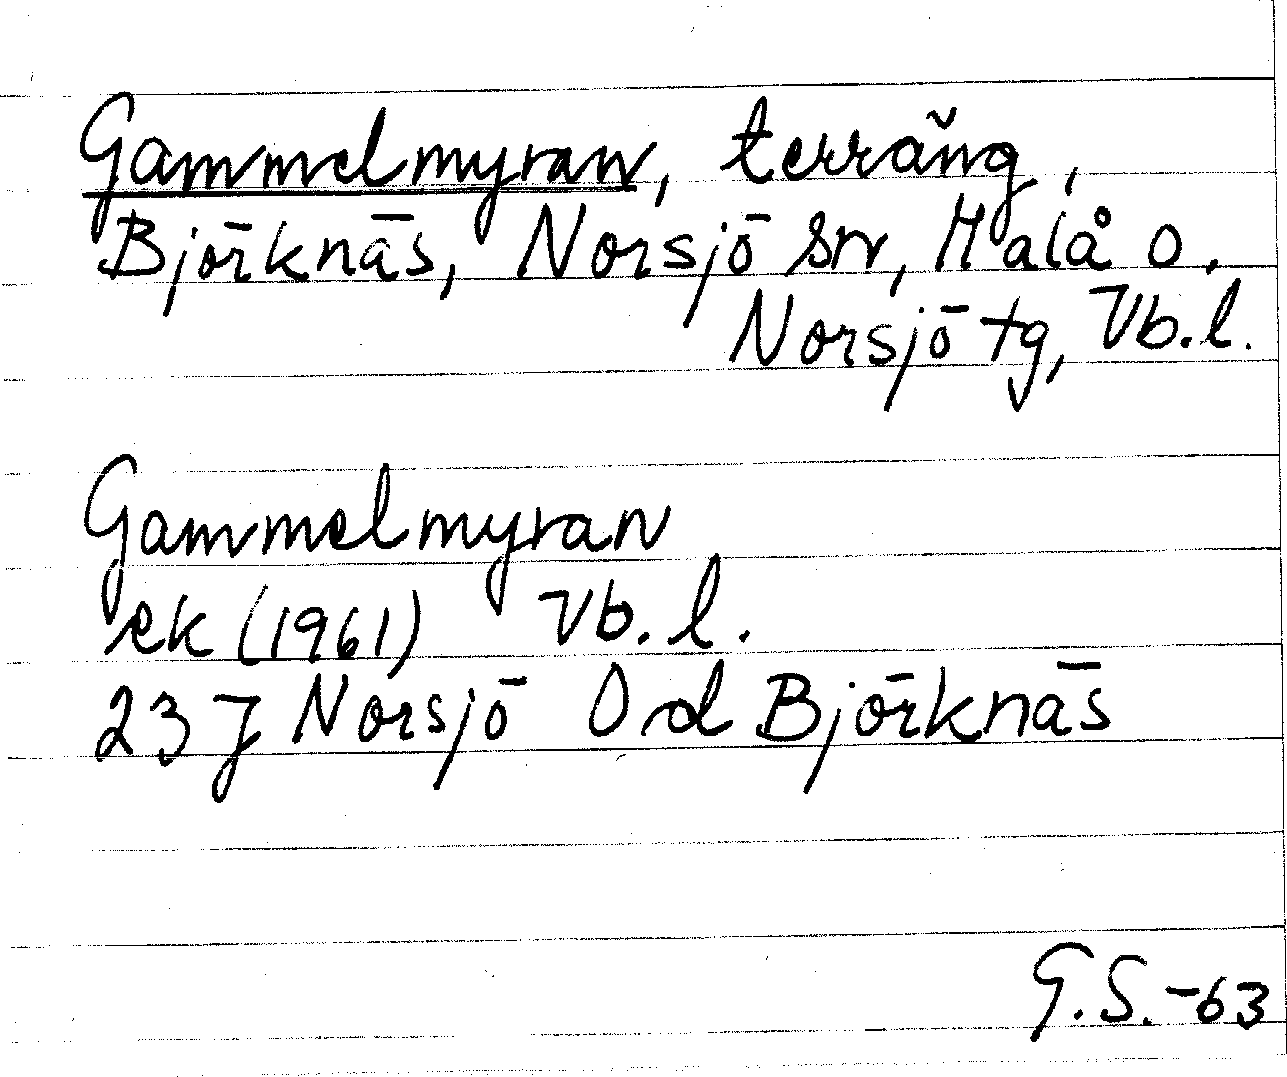 Gammelmyran, terräng,
Björknäs, Norsjö sn, Malå o.
Norsjö tg, Vb.l.
Gammelmyran
ek (1961) Vb.l.
23 J Norsjö Od Björknäs
G.S.-63